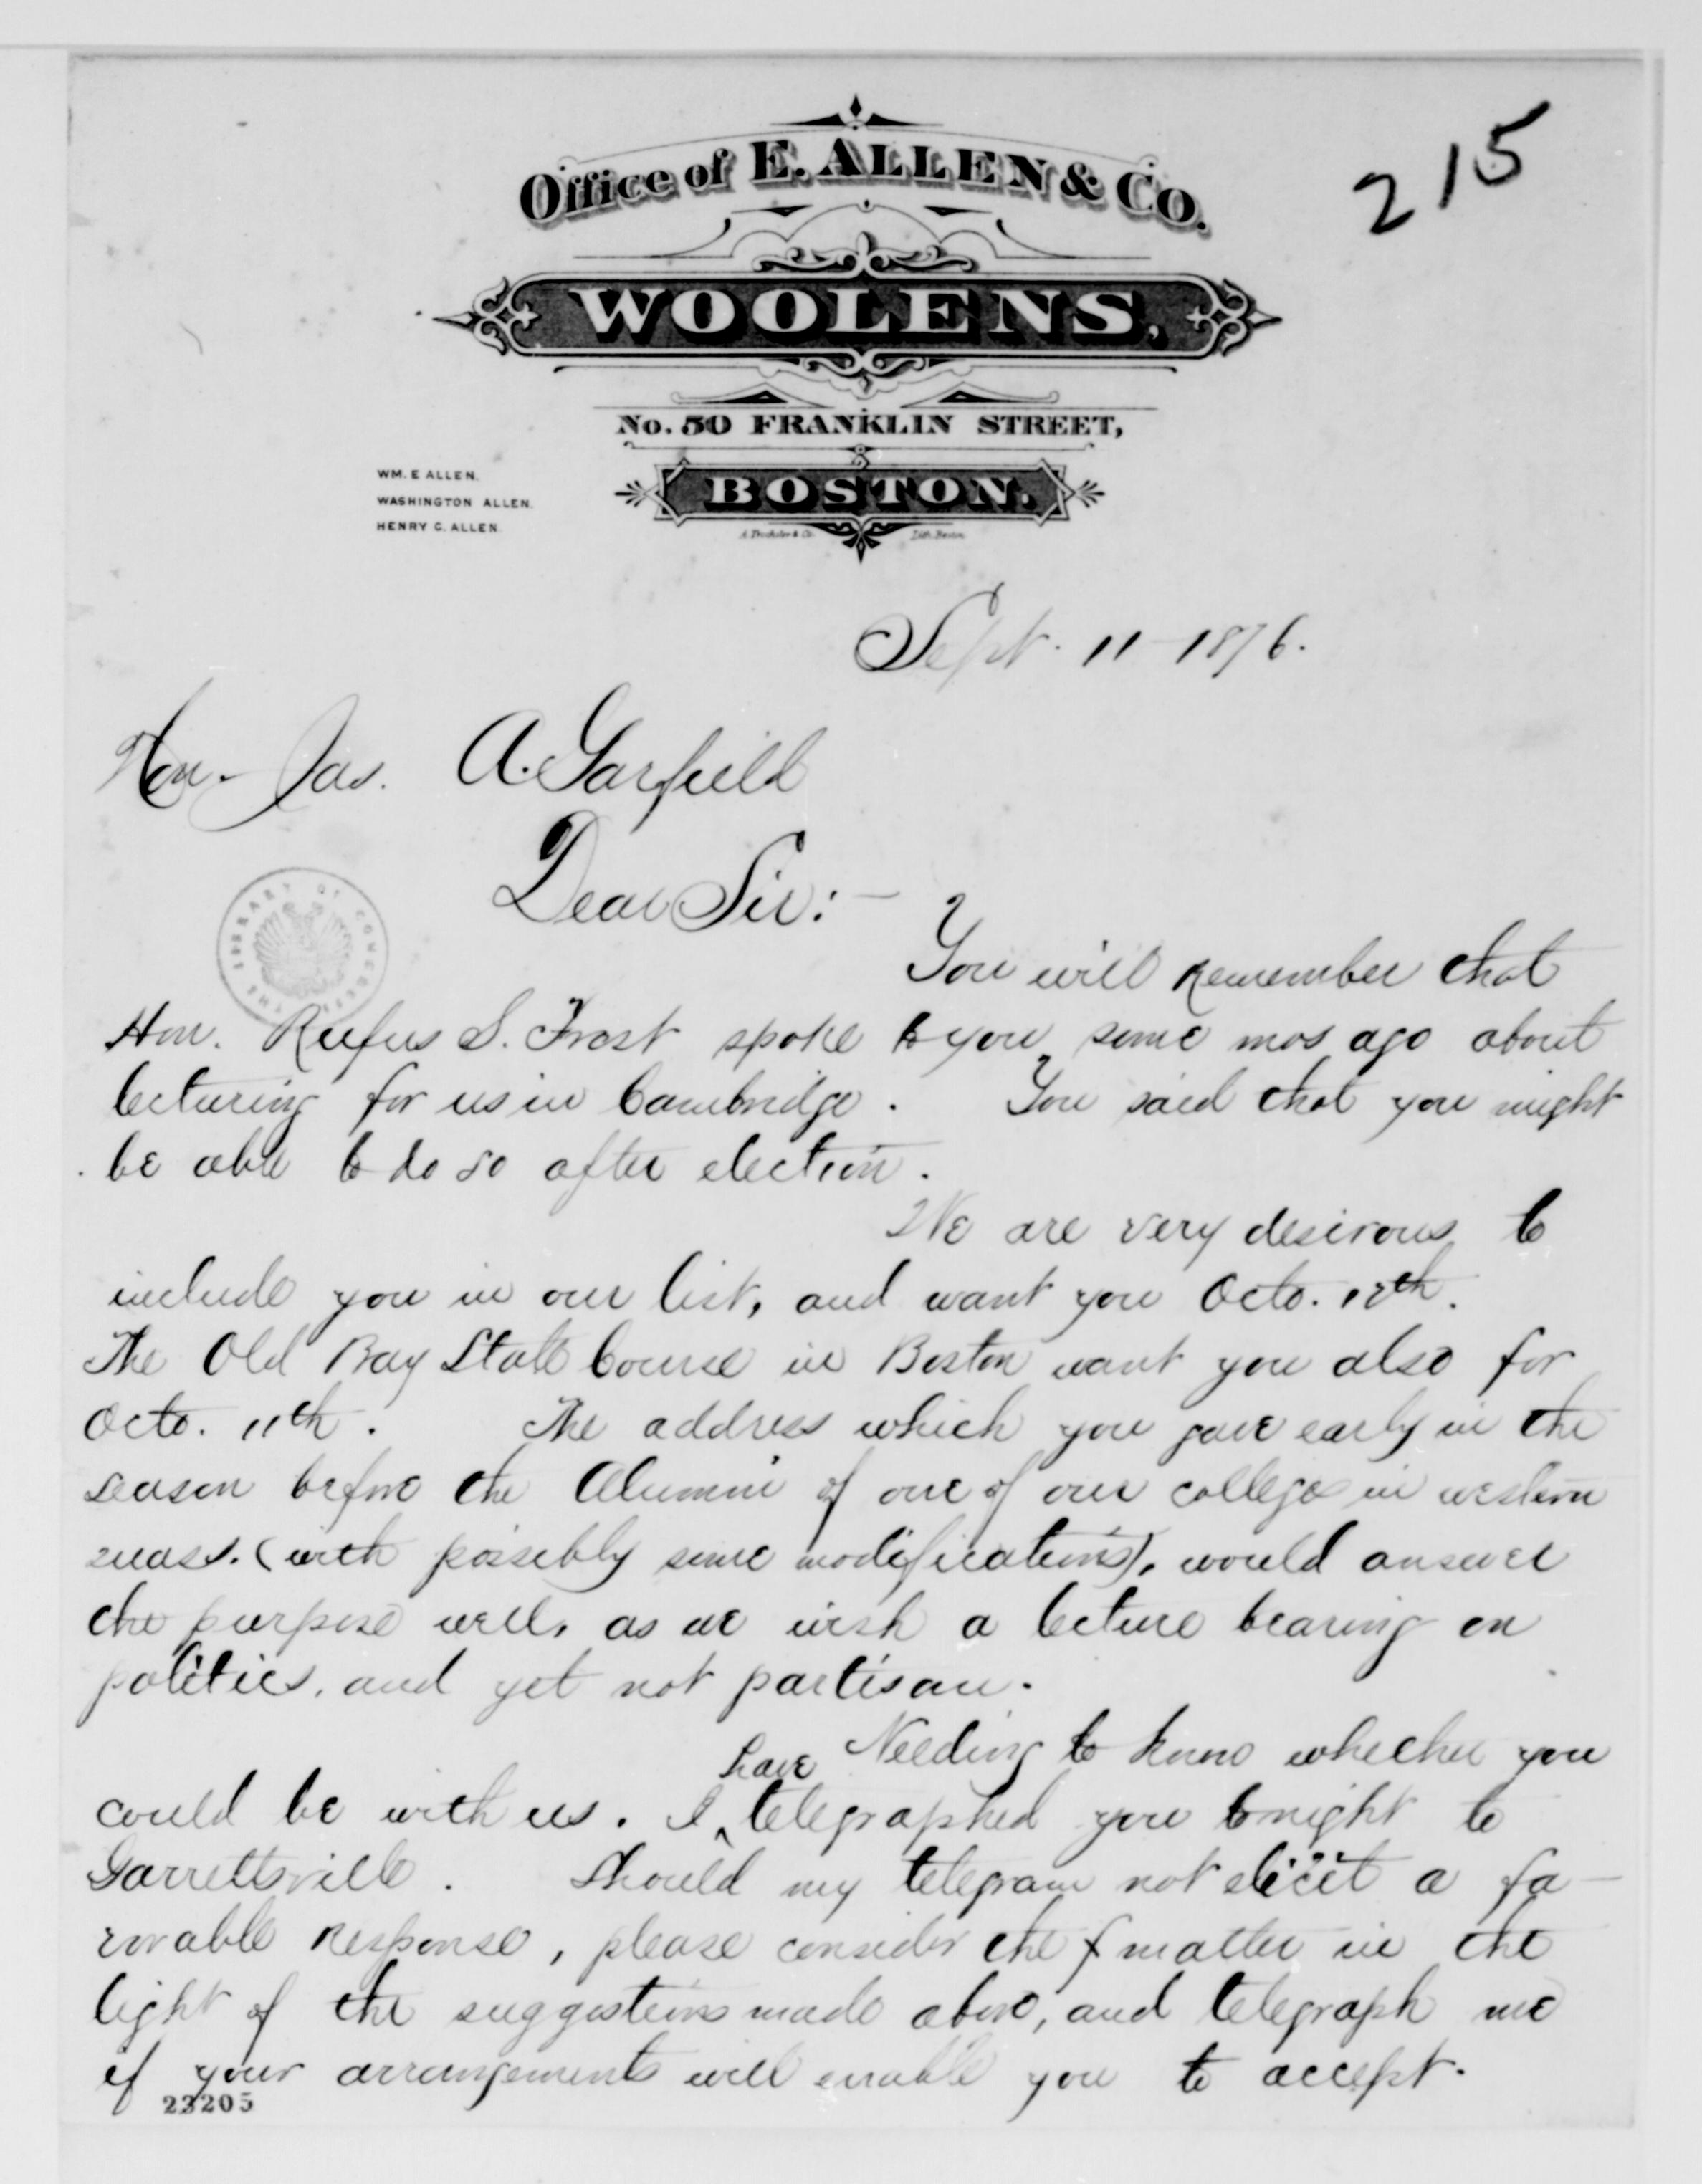 215
Office of E. ALLEN & Co.
WOOLENS,
No. 50 FRANKLIN STREET,
WM. E ALLEN.
WASHINGTON ALLEN.
HENRY C. ALLEN.
BOSTON.
Lith. Boston
Sept. 11 1876.
Hon. Jas. A. Garfield
Dear Sir:—
You will remember that
Hon. Rufus S. Frost spoke to you some mos ago about
lecturing for us in Cambridge. You said that you might
be able to do so after election.
We are very desirous to
include you in our list, and want you Octo. 12th.
The Old Bay State Course in Boston want you also for
Octo. 11th. The address which you gave early in the
season before the Alumni of one of our colleges in western
mass. (with possibly some modifications), would answer
the purpose well, as we wish a lecture bearing on
politics, and yet not partisan.
Needing to know whether you
could be with us. I have telegraphed you tonight to
Garrettsville. Should my telegram not elicit a fa-
vorable response, please consider the matter in the
light of the suggestions made above, and telegraph me
if your arrangements will enable you to accept.
23205
THE LIBRARY OF CONGRESS